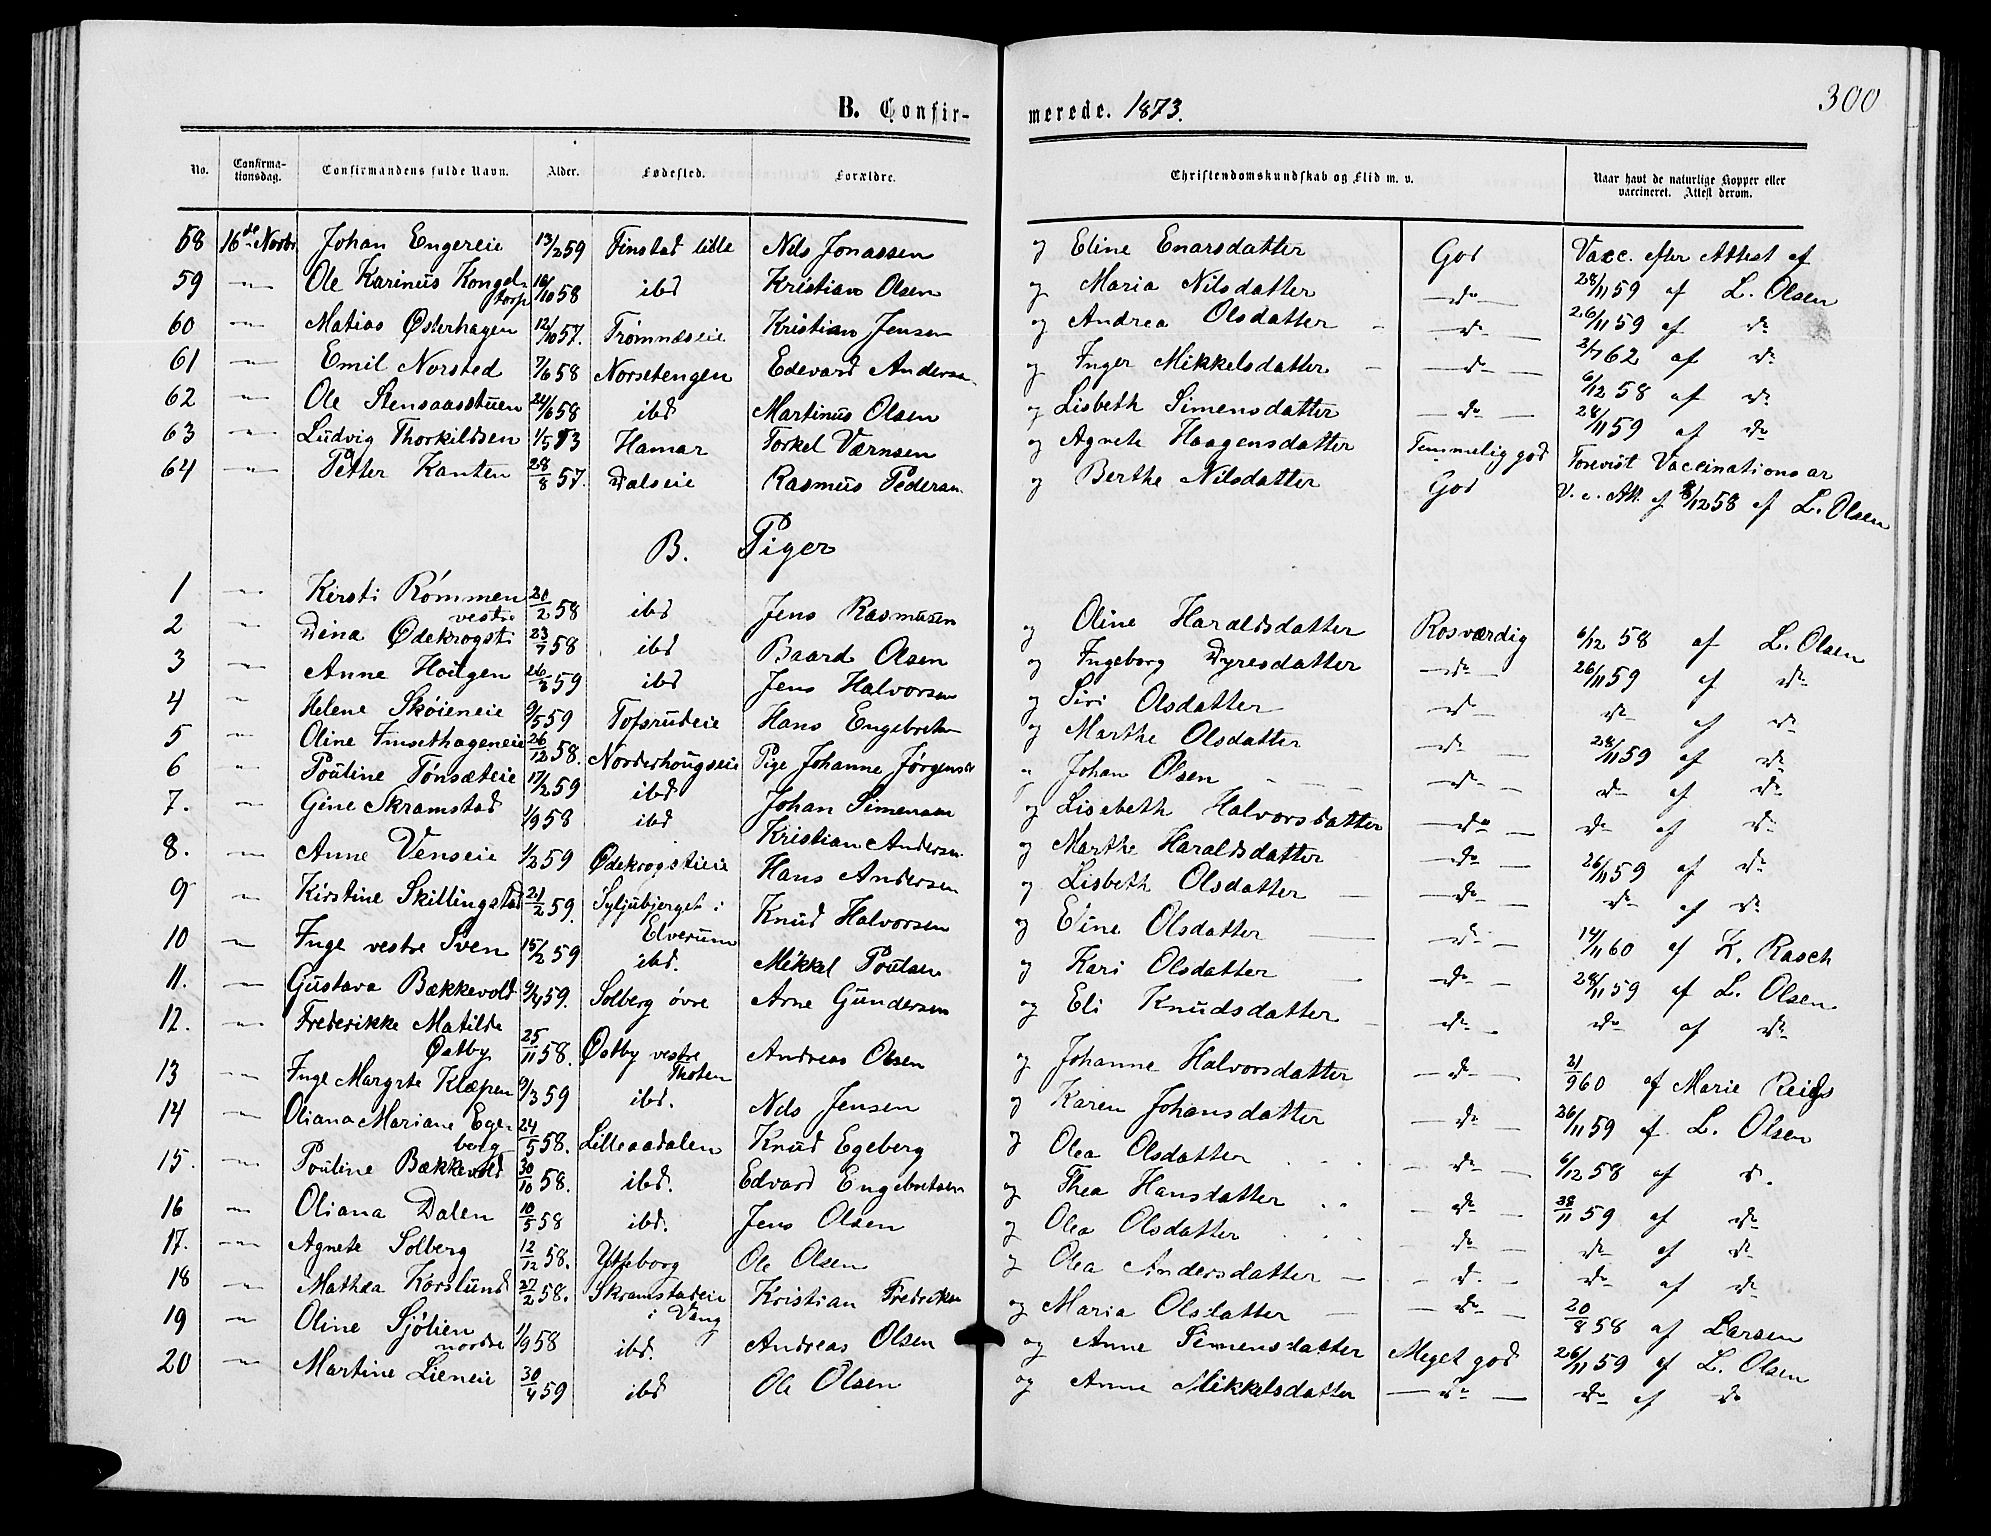 300
B. Confirmerede. 1873.
No. Confirmationsdag. Confirmandens fulde Navn. Alder. Fødested. Forældre. Christendomskundskab og Flid m. v. Naar havt de naturlige Kopper eller vaccineret. Attest derom.
58 16de Novbr Johan Engereie 13/2 59 Finstad lille Nils Jonassen og Eline Enarsdatter God Vacc. efter Attest af
59 -"- Ole Karinus Kongelstorp 16/10 58 ibd Kristian Olsen og Maria Nilsdatter -do- 28/11 59 af L. Olsen
60 -"- Matias Østerhagen 12/10 57. Trømnæseie Kristian Jensen og Andrea Olsdatter -do- 26/11 59 af do
61 -"- Emil Norsted 7/6 58 Norsetengen Edevard Andersen og Inger Mikkelsdatter -do- 2/7 62 af do
62 -"- Ole Stensaasstuen 24/6 58 ibd Martinus Olsen og Lisbeth Simensdatter -do- 6/12 58 af do
63 -"- Ludvig Thorkildsen 1/5 Hamar Torkel Værnsen og Agnete Haagensdatter Temmelig god 28/11 59 af do
64 -"- Petter Kanten 28/8 57. Dalseie Rasmus Pedersen og Berthe Nilsdatter God Forevist Vaccinations
V. e. Att. af 12 58 af L. Olsen
B. Piger
1 -"- Kirsti Rømmen 20/2 58 ibd Jens Rasmusen og Oline Haraldsdatter Rosværdig 6/12 58 af L. Olsen
2 -"- Dina Ødekrogsti vestre 23/7 58 ibd Baard Olsen og Ingeborg Dyresdatter -do- 26/11 59 af do
3 -"- Anne Hoilgen 26/3 59 ibd Jens Halvorsen og Siri Olsdatter -do- do af do
4 -"- Helene Skøieneie 9/5 59 Tofsrudeie Hans Engebretsen og Marthe Olsdatter -do- 28/11 59 af do
5 -"- Oline Finsethageneie 26/12 58. Norderhougseie Pige Johanne Jørgensd " Johan Olsen -do- do af do
6 -"- Pouline Tønsæteie 17/2 59 ibd Johan Simensen og Lisebeth Halvorsdatter -do- do af do
7. -"- Gine Skramstad 1/9 58 ibd Kristian Andersen og Marthe Haraldsdatter -do- 26/11 59 af do
8. -"- Anne Venseie 1/2 59 Ødekrogstieie Hans Andersen og Lisbeth Olsdatter -do- do af do
9 -"- Kirstine Skillingstad 21/2 59. Syljubjerget i Elverum Knud Halvorsen og Eline Olsdatter -do- 14/11 60 af K. Rasch
10 -"- Inge vestre Sven 15/2 59 ibd. Mikkel Poulsen og Kari Olsdatter -do- 28/11 59 af L. Olsen
11. -"- Gustava Bækkevold 9/4 59. Solberg øvre Arne Gundersen og Eli Knudsdatter -do- do af do
12. -"- Frederikke Matilde Østby 25/11 58. Østby vestre Thoten Andreas Olsen og Johanne Halvorsdatter -do- 21/9 60 af Marie
13 -"- Inge Margrte Klæpen 9/3 59 ibd. Nils Jensen og Karen Johansdatter -do- 26/11 59 af L. Olsen
14 -"- Oliana Mariane Egeberg 24/5 58. Lilleaadalen Knud Egeberg og Olea Olsdatter -do- 6/12 58 af do
15. -"- Pouline Bækkevold 30/10 58. ibd. Edvard Engebretsen og Thea Hansdatter -do- 28/11 59 af do
16 -"- Oliana Dalen 10/5 58 ibd. Jens Olsen og Olea Olsdatter -do- do af do
17. -"- Agnete Solberg 12/12 58. Ytteborg Ole Olsen og Olea Andersdatter -do- do af do
18 -"- Mathea Korslund 27/2 58. Skramstadeie i Vang Kristian Fredriksen og Maria Olsdatter -do- 20/8 58 af Larsen
19 -"- Oline Sjølien nordre 1/9 58 ibd. Andreas Olsen og Anne Simensdatter Meget god 26/11 59 af L. Olsen
20 -"- Martine Lieneie 30/4 59 ibd Ole Olsen og Anne Mikkelsdatter -do- do af do